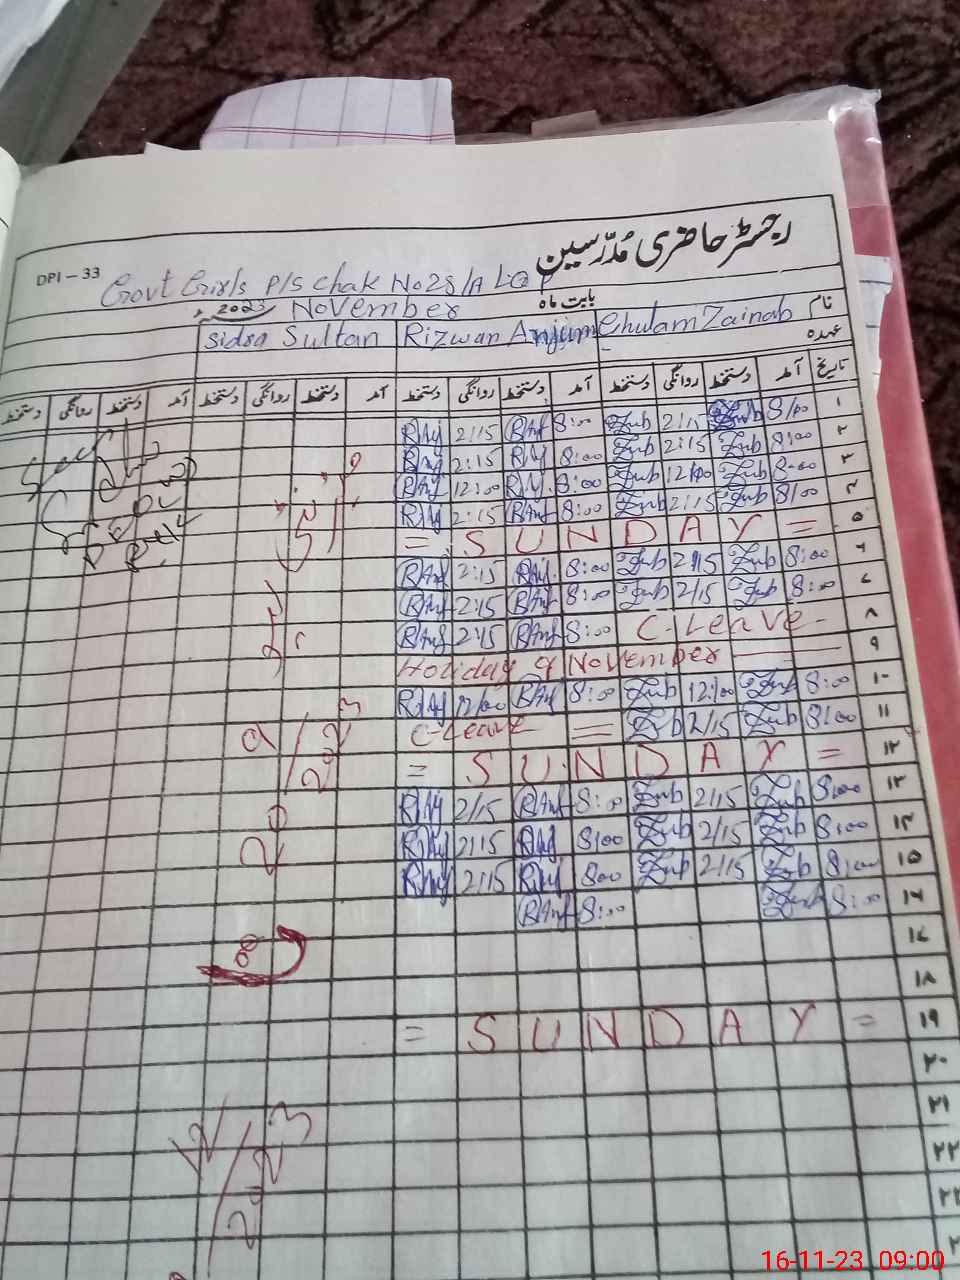 رجسٹر حاضری مُدرّسین
DPI - 33
Govt Girls P/S Chak No 28/A LQP
بابت ماہ November 2023
نام Ghulam Zainab Rizwan Anjum Sidra Sultan
عہدہ
تاریخ آمد دستخط روانگی دستخط آمد دستخط روانگی دستخط آمد دستخط روانگی دستخط آمد دستخط روانگی دستخط
۱ 8/00 Znb 2/15 Znb 8:00 RAnj 2/15 RAnj
۲ 8:00 Znb 2:15 Znb 8:00 RAnj 2:15 RAnj
۳ 8:00 Znb 12/00 Znb 8:00 RAnj 12:00 RAnj
۴ 8/00 Znb 2:15 Znb 8:00 RAnj 2:15 RAnj
۵ = SUNDAY =
۶ 8:00 Znb 2:15 Znb 8:00 RAnj 2:15 RAnj
۷ 8:00 Znb 2/15 Znb 8:00 RAnj 2:15 RAnj
۸ C-Leave - 8:00 RAnj 2:15 RAnj
۹ Holiday 9 November
۱۰ 8:00 Znb 12:00 Znb 8:00 RAnj 12/00 RAnj
۱۱ 8/00 Znb 2/15 Znb = C-Leave
۱۲ = SUNDAY =
۱۳ 8:00 Znb 2/15 Znb 8:00 RAnj 2/15 RAnj
۱۴ 8:00 Znb 2/15 Znb 8/00 RAnj 2/15 RAnj
۱۵ 8:00 Znb 2/15 Znb 800 RAnj 2/15 RAnj
۱۶ 8:00 Znb 8:00 RAnj
۱۷
۱۸
۱۹ = SUNDAY =
۲۰
۲۱
۲۲
۲۳
16-11-23 09:00